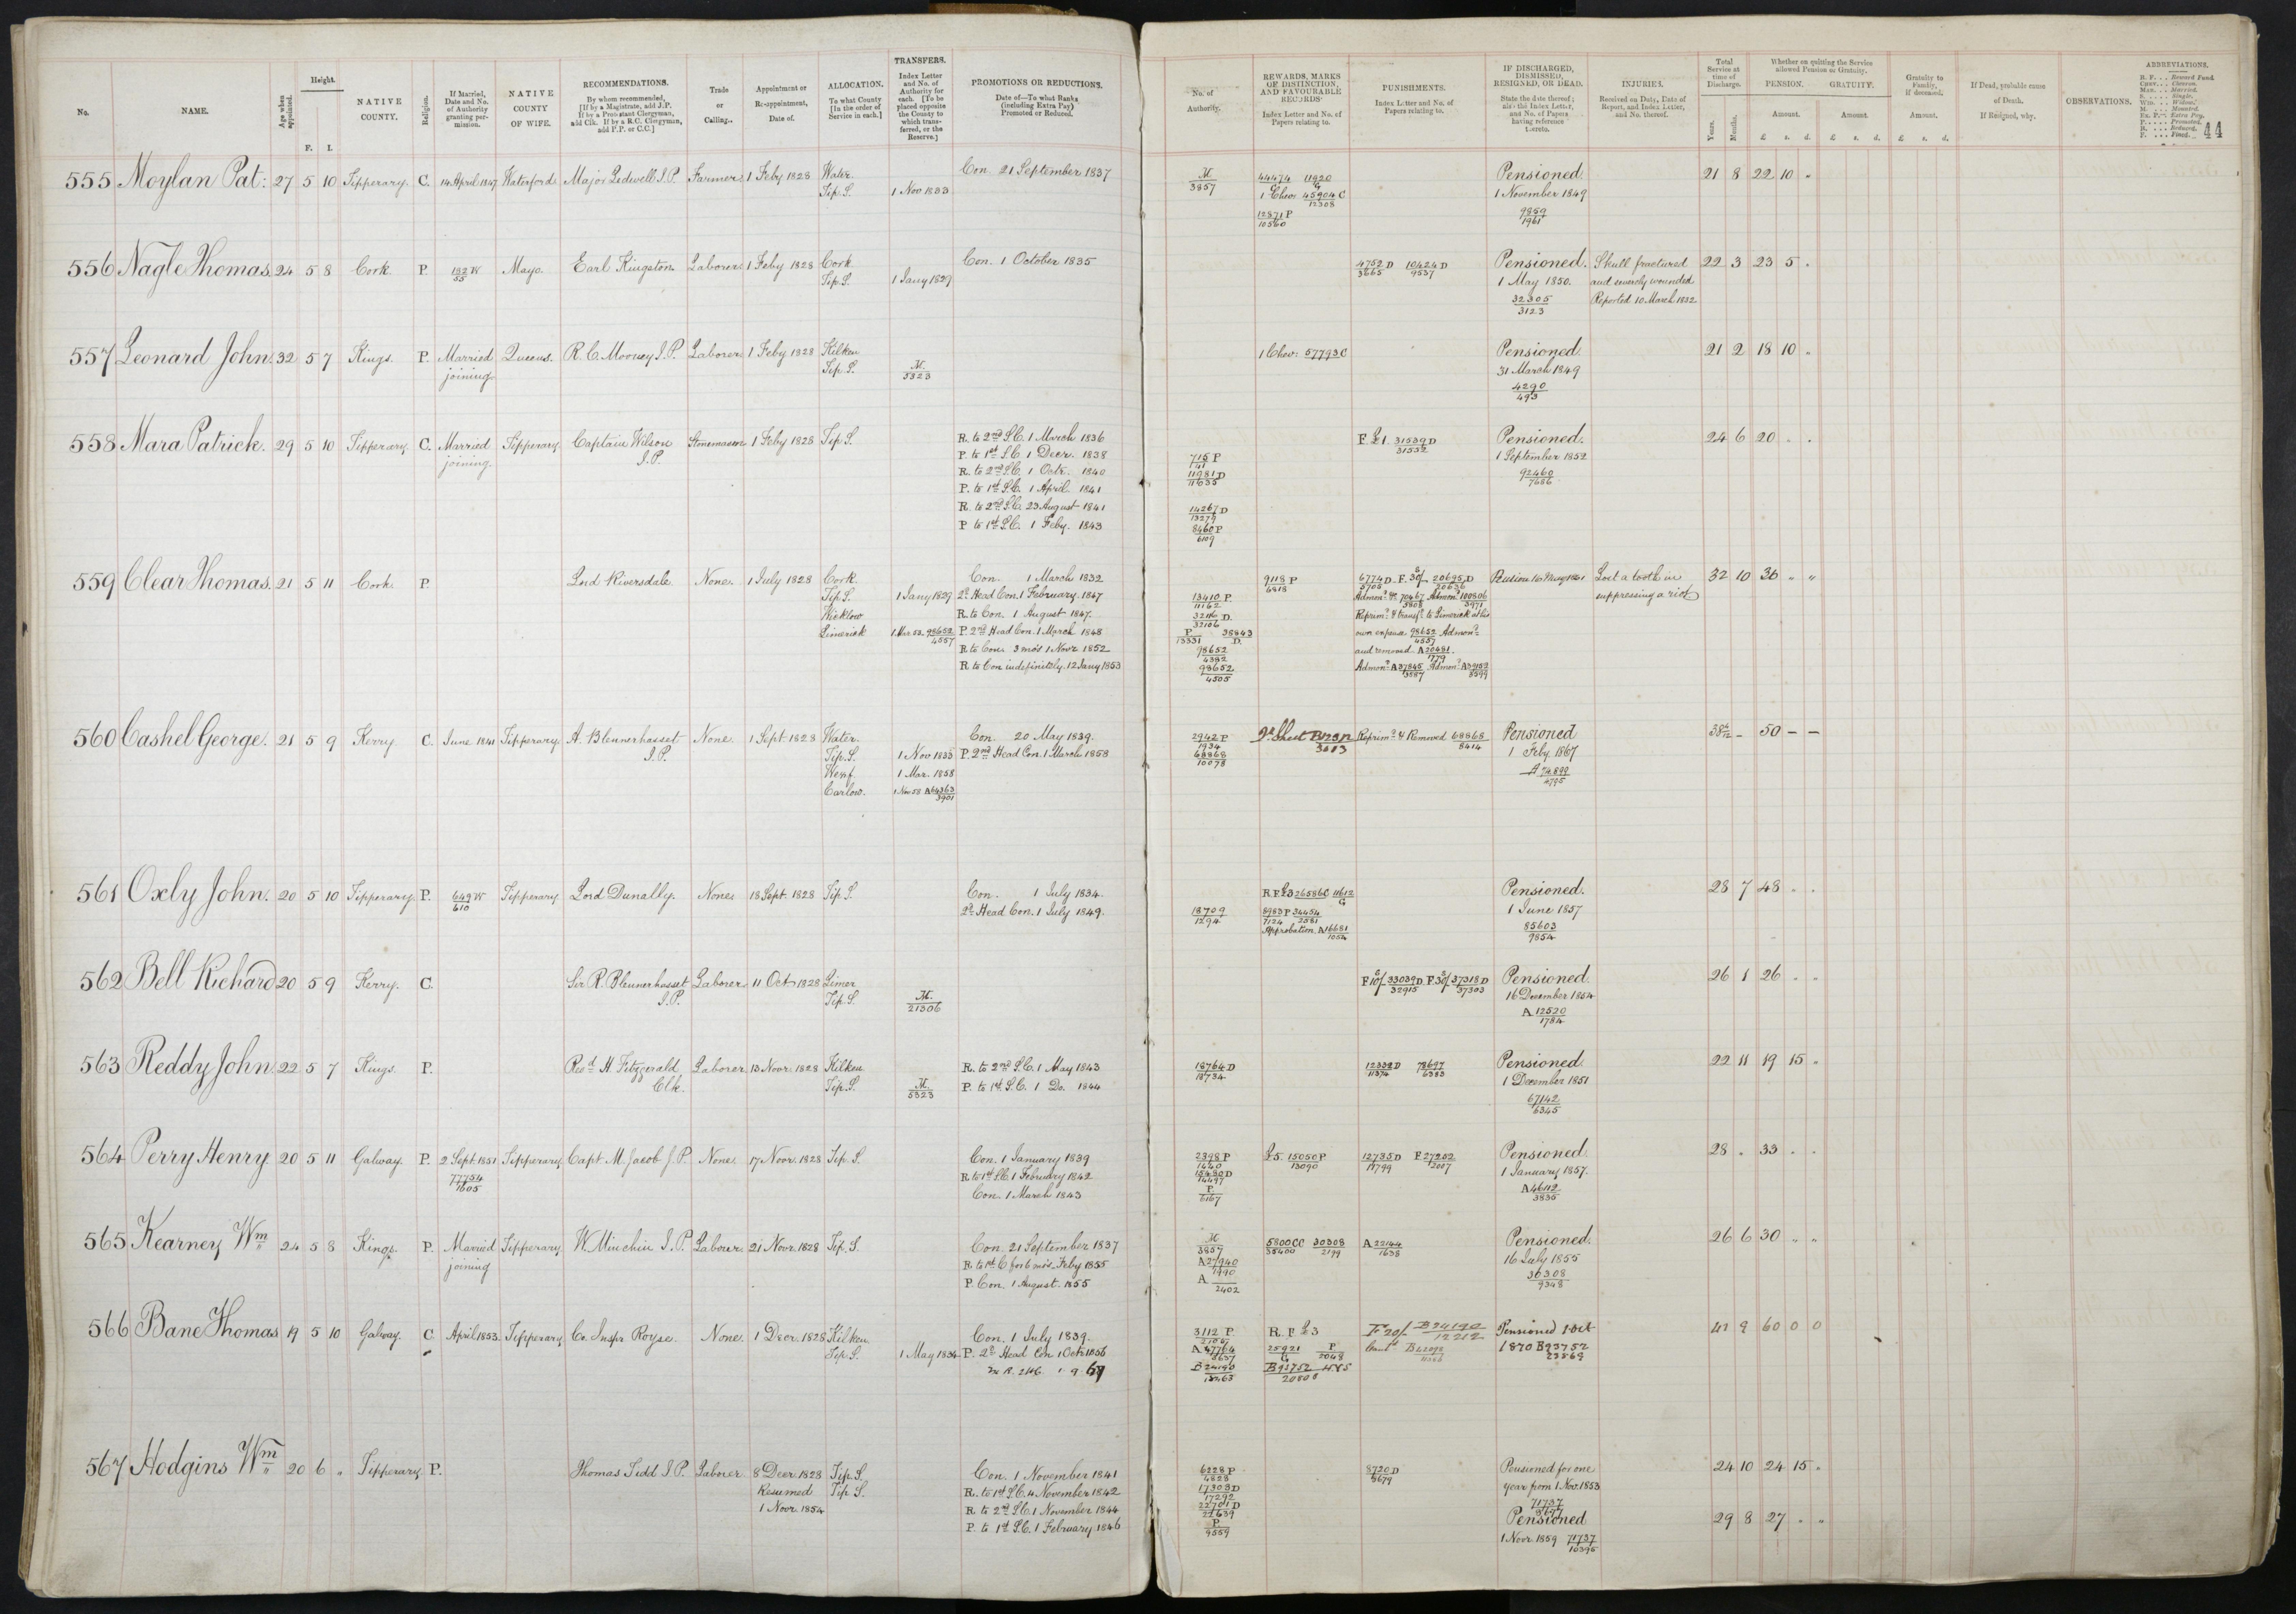 No.
NAME.
Age when appointed.
Height.
F. I.
NATIVE COUNTY.
Religion.
If Married, Date and No. of Authority granting permission.
NATIVE COUNTY OF WIFE.
RECOMMENDATIONS.
By whom recommended, [If by a Magistrate, add J.P. If by a Protestant Clergyman, add Clk. If by a R.C. Clergyman, add P.P. or C.C.]
Trade or Calling.
Appointment or Re-appointment, Date of.
ALLOCATION.
To what County [In the order of Service in each.]
TRANSFERS.
Index Letter and No. of Authority for each. [To be placed opposite the County to which transferred, or the Reserve.]
PROMOTIONS OR REDUCTIONS.
Date of—To what Ranks (including Extra Pay) Promoted or Reduced.
No. of Authority.
REWARDS, MARKS OF DISTINCTION, AND FAVOURABLE RECORDS
Index Letter and No. of Papers relating to.
PUNISHMENTS.
Index Letter and No. of Papers relating to.
IF DISCHARGED, DISMISSED, RESIGNED, OR DEAD.
State the date thereof; also the Index Letter, and No. of Papers having reference thereto.
INJURIES.
Received on Duty, Date of Report, and Index Letter, and No. thereof.
Total Service at time of Discharge.
Years. Months.
Whether on quitting the Service allowed Pension or Gratuity.
PENSION. GRATUITY.
Amount. Amount.
£ s. d. £ s. d.
Gratuity to Family, if deceased.
Amount.
£ s. d.
If Dead, probable cause of Death.
If Resigned, why.
OBSERVATIONS.
ABBREVIATIONS.
R. F. . . . Reward Fund.
Chev. . . . Chevron.
Mar. . . . Married.
S. . . . . Single.
Wid. . . . Widow.
M. . . . . Mounted.
Ex. P. . . Extra Pay.
P. . . . . Promoted.
R. . . . . Reduced.
F. . . . . Fined.
44
555 Moylan Pat: 27 5 10 Tipperary. C. 14 April 1847 Waterford Major Ledwell J.P. Farmer 1 Feby 1828 Water Con. 21 September 1837 M 44474 11920 Pensioned. 21 8 22 10 "
Tip. S. 1 Nov 1833 3857 1 Chev: 45904 C 1 November 1849
12308
12871 P 9859
10560 1961
556 Nagle Thomas 24 5 8 Cork P. 182 W Mayo. Earl Kingston Laborer 1 Feby 1828 Cork Con. 1 October 1835 4752 D 10424 D Pensioned. Skull fractured 22 3 23 5 "
55 Tip. S. 1 Jany 1829 3665 9537 1 May 1850. and severely wounded
32305 Reported 10 March 1832
3123
557 Leonard John. 32 5 7 Kings. P. Married Queens. R. C. Mooney J.P. Laborer 1 Feby 1828 Kilken 1 Chev: 57793 C Pensioned. 21 2 18 10 "
joining. Tip. S. M. 31 March 1849
5323 4290
493
558 Mara Patrick. 29 5 10 Tipperary. C. Married Tipperary Captain Wilson Stonemason 1 Feby 1828 Tip. S. R. to 2nd S.C. 1 March 1836 F. £1. 31539 D Pensioned. 24 6 20 " "
joining. J.P. P. to 1st S.C. 1 Decr. 1838 715 P 31552 1 September 1852
R. to 2nd S.C. 1 Octr. 1840 11981 D 92460
P. to 1st S.C. 1 April. 1841 11635 7686
R. to 2nd S.C. 23 August 1841 14267 D
P to 1st S.C. 1 Feby. 1843 13279
8460 P
6109
559 Clear Thomas. 21 5 11 Cork P. Lord Riversdale. None. 1 July 1828 Cork. Con. 1 March 1832 9118 P 6774 D. F. 30/ 20695 D Pension 16 May 1861 Lost a tooth in 32 10 36 " "
Tip. S. 1 Jany 1829 2d Head Con. 1 February. 1847 13410 P. 6818 5705 20636 suppressing a riot
Wicklow R. to Con. 1 August 1847. 11162 Admond. &c. 70467 Admond. 100806
Limerick 1 Mar 53. 98652 P. 2nd Head Con. 1 March 1848 32116 D. Reprimd. & transfd. to Limerick at his
4557 R to Con. 3 mos 1 Novr 1852 P 38843 own expense 98652 Admond.
R to Con indefinitely. 12 Jany 1853 13331 D. and removed. A 20481
98652 Admond. A 37845 Admond. A 39152
4382 3587 3599
98652
4505
560 Cashel George. 21 5 9 Kerry C. June 1841 Tipperary. A. Blennerhasset None. 1 Sept. 1828 Water. Con. 20 May 1839. 2942 P Reprimd. & Removed 68868 Pensioned 50 – –
J.P. Tip. S. 1 Nov 1833 P. 2nd Head Con. 1 March 1858 1934 3613 8414 1 Feby. 1867
Wexf. 1 Mar. 1858 68868 A 74899
Carlow. 1 Nov 58 A 64363 10078 4795
3901
561 Oxly John. 20 5 10 Tipperary. P. 649 W Tipperary Lord Dunally. None. 18 Sept. 1828 Tip. S. Con. 1 July 1834. R.F. £3 26586 C 11612 Pensioned. 28 7 48 " "
610 2d Head Con. 1 July 1849. 18709 898 D P 34454 1 June 1857
1294 7124 2581 85603
Approbation A 16681 9854
1054
562 Bell Richard 20 5 9 Kerry. C. Sir R. Blennerhasset Laborer 11 Oct 1828 Limer F 10/ 33039 D. F. 30/ 37318 D Pensioned. 26 1 26 " "
J.P. Tip. S. M. 32915 37303 16 December 1854
21306 A 12520
1784
563 Reddy John 22 5 7 Kings. P. Revd. H Fitzgerald Laborer 13 Novr. 1828 Kilken R. to 2nd S.C. 1 May 1843 18764 D 12332 D 78697 Pensioned. 22 11 19 15 "
Clk. Tip. S. M. P. to 1st S.C. 1 Do. 1844 18734 11374 6383 1 December 1851
5323 67142
6345
564 Perry Henry 20 5 11 Galway. P. 2 Sept. 1851 Tipperary Capt. M. Jacob J.P. None. 17 Novr. 1828 Tip. S. Con. 1 January 1839 2398 P £5. 15050 P 12735 D F 27202 Pensioned. 28 " 33 " "
77754 R to 1st S.C. 1 February 1842 1440 13090 11799 2007 1 January 1857.
1605 Con. 1 March 1843 15480 D A 46112
14497 3835
P.
6167
565 Kearney Wm 24 5 8 Kings. P. Married Tipperary W. Minchin J.P. Labourer 21 Novr. 1828 Tip. S. Con. 21 September 1837 M 5800 CC 30308 A 22144 Pensioned. 26 6 30 " "
joining R. to 1st C for 6 mos. Feby 1855 3857 35400 2199 1638 16 July 1855
P. Con. 1 August. 1855 A 27940 30308
1990 9348
A
2402
566 Bane Thomas 19 5 10 Galway. C April 1853. Tipperary Co. Inspr Royse. None. 1 Decr. 1828 Kilken Con. 1 July 1839. 3112 P. R. F. £3 F 20/ B 24190 Pensioned 1 Oct 41 9 60 0 0
Tip. S. 1 May 1834 P. 2d Head Con 1 Octr 1856 2104 25921 P 12212 1870 B 93752
1 9 67 A 47704 2048 23569
B 24190 B 93752
20808
567 Hodgins Wm 20 6 " Tipperary. P. Thomas Sidd J.P. Laborer 8 Decr. 1828 Tip. S. Con. 1 November 1841 6228 P 8720 D Pensioned for one 24 10 24 15 "
Resumed Tip S. R. to 1st S.C. 4 November 1842 4828 8679 year from 1 Nov. 1853
1 Novr 1854 R. to 2nd S.C. 1 November 1844 17303 D 71737
P. to 1st S.C. 1 February 1846 17292 Pensioned 29 8 27 " "
22701 D 1 Novr. 1859 71737
22639 10395
P
9559